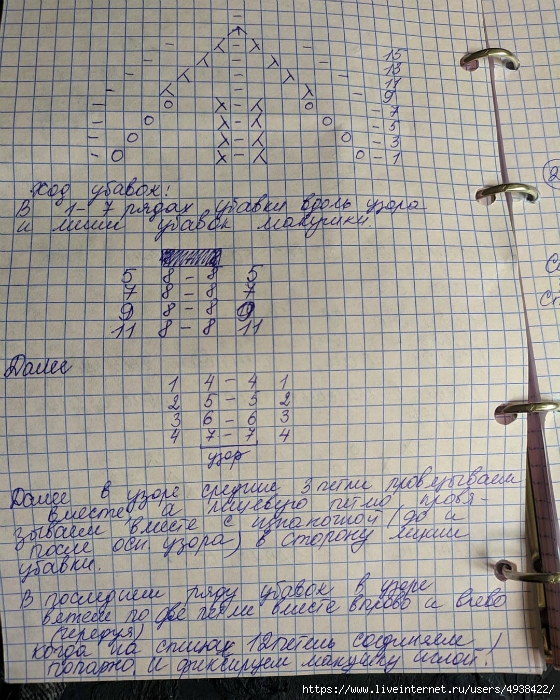 15
13
11
9
7
5
3
- 1
Ход убавок:
В 1-7 рядах убавки вдоль узора
и линии убавок макушки.
5 8 - 8 5
7 8 - 8 7
9 8 - 8 9
11 8 - 8 11
Далее
1 4 - 4 1
2 5 - 5 2
3 6 - 6 3
4 7 - 7 4
узор
Далее в узоре средние 3 петли провязываем
вместе, а лицевую петлю провя-
зываем вместе с изнаночной (до и
после оси узора) в сторону линии
убавки.
В последнем ряду убавок в узоре
вяжем по две петли вместе вправо и влево
(чередуя)
когда на спицах 12 петель соединяем
и фиксируем макушку иглой!
https://www.liveinternet.ru/users/4938422/